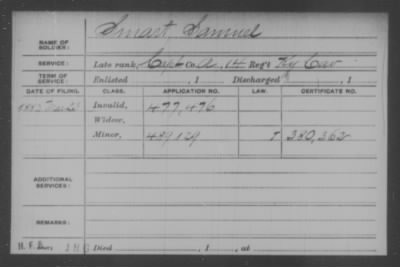 Smart, Samuel
NAME OF SOLDIER:
SERVICE: Late rank, Capt Co. A, 14 Reg't Ky Cav
TERM OF SERVICE: Enlisted , 1 Discharged , 1
DATE OF FILING. CLASS. APPLICATION NO. LAW. CERTIFICATE NO.
Invalid, 477,476
Widow,
Minor, 489,129 380,362
ADDITIONAL SERVICES:
REMARKS:
Died , 1 , at